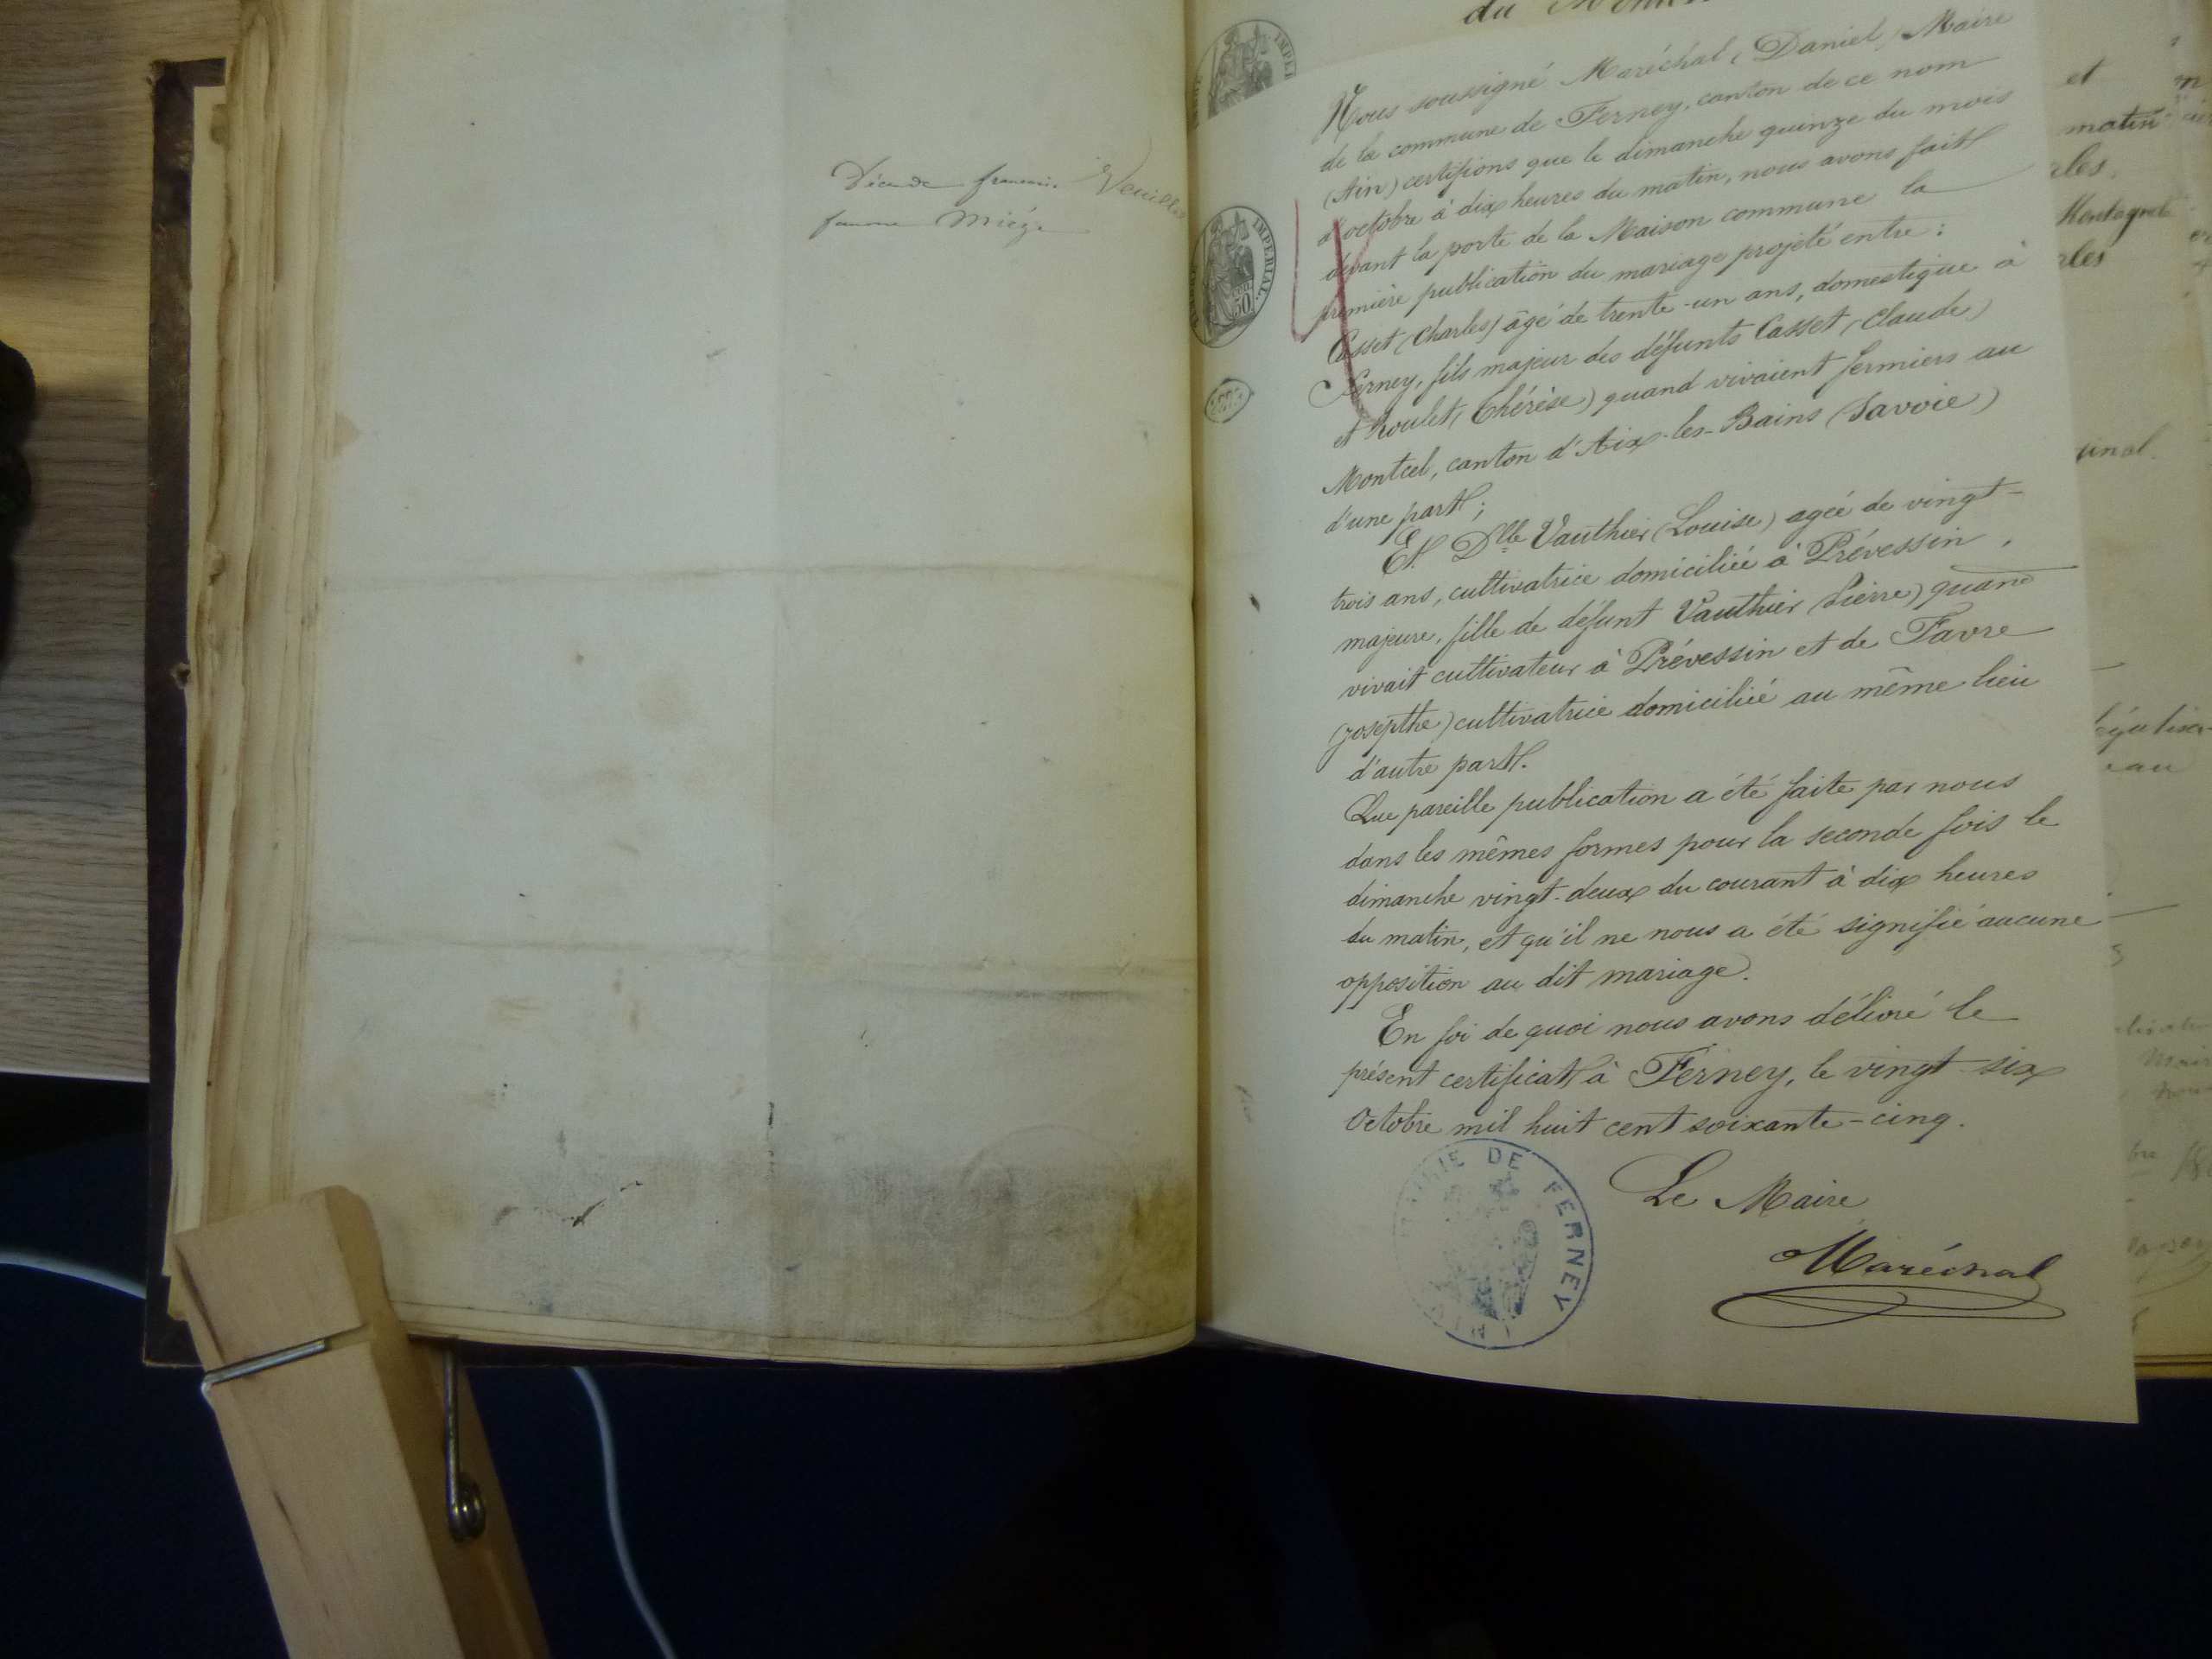 femme Miége
Nous soussigné Maréchal (Daniel) Maire
de la commune de Ferney, canton de ce nom
(Ain) certifions que le dimanche quinze du mois
d'octobre à dix heures du matin, nous avons fait
devant la porte de la Maison commune la
première publication du mariage projeté entre :
Casset (Charles) âgé de trente-un ans, domestique à
Ferney, fils majeur des défunts Casset (Claude)
et Roulet (Thérèse) quand vivaient fermiers au
Montcel, canton d'Aix-les-Bains (Savoie)
d'une part ;
Et Dlle Vauthier (Louise) agée de vingt-
trois ans, cultivatrice domiciliée à Prévessin,
majeure, fille de défunt Vauthier (Pierre) quand
vivait cultivateur à Prévessin et de Favre
(Josepthe) cultivatrice domiciliée au même lieu
d'autre part.
Que pareille publication a été faite par nous
dans les mêmes formes pour la seconde fois le
dimanche vingt-deux du courant à dix heures
du matin, et qu'il ne nous a été signifié aucune
opposition au dit mariage.
En foi de quoi nous avons délivré le
présent certificat à Ferney, le vingt-six
Octobre mil huit cent soixante-cinq.
Le Maire
Maréchal
DE FERNEY
IMPERIAL
50
et
matin